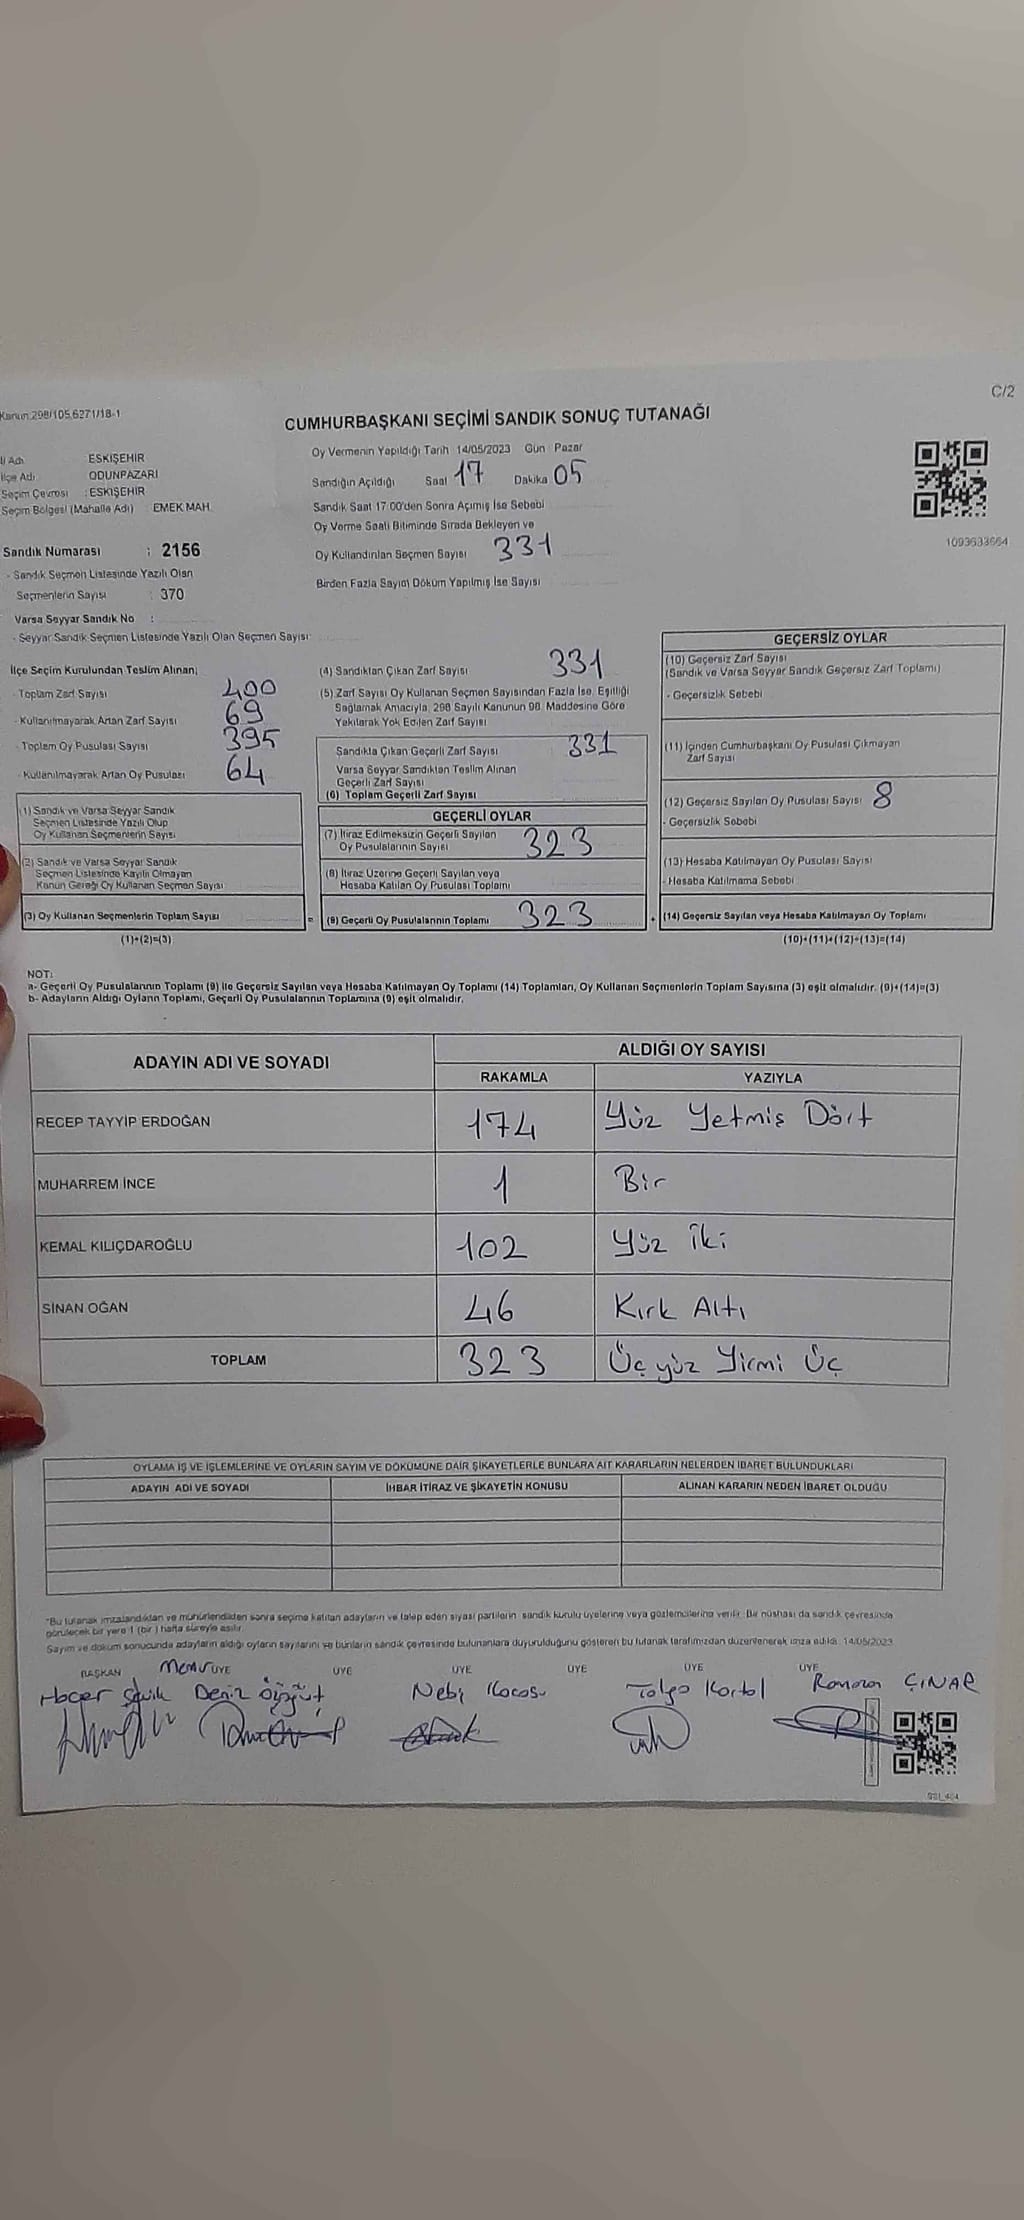 C/2
Kanun:298/105,6271/18-1
CUMHURBAŞKANI SEÇİMİ SANDIK SONUÇ TUTANAĞI
İl Adı ESKİŞEHİR
İlçe Adı ODUNPAZARI
Seçim Çevresi : ESKİŞEHİR
Seçim Bölgesi (Mahalle Adı) EMEK MAH.
Sandık Numarası : 2156
- Sandık Seçmen Listesinde Yazılı Olan
Seçmenlerin Sayısı : 370
Varsa Seyyar Sandık No :
- Seyyar Sandık Seçmen Listesinde Yazılı Olan Seçmen Sayısı
Oy Vermenin Yapıldığı Tarih 14/05/2023 Gün Pazar
Sandığın Açıldığı Saat 17 Dakika 05
Sandık Saat 17:00'den Sonra Açımış İse Sebebi
Oy Verme Saati Bitiminde Sırada Bekleyen ve
Oy Kullandırılan Seçmen Sayısı 331
Birden Fazla Sayım Döküm Yapılmış İse Sayısı
1093633664
İlçe Seçim Kurulundan Teslim Alınan;
- Toplam Zarf Sayısı 400
- Kullanılmayarak Artan Zarf Sayısı 69
- Toplam Oy Pusulası Sayısı 395
- Kullanılmayarak Artan Oy Pusulası 64
(1) Sandık ve Varsa Seyyar Sandık
Seçmen Listesinde Yazılı Olup
Oy Kullanan Seçmenlerin Sayısı
(2) Sandık ve Varsa Seyyar Sandık
Seçmen Listesinde Kayıtlı Olmayan
Kanun Gereği Oy Kullanan Seçmen Sayısı
(3) Oy Kullanan Seçmenlerin Toplam Sayısı
(1)+(2)=(3)
(4) Sandıktan Çıkan Zarf Sayısı 331
(5) Zarf Sayısı Oy Kullanan Seçmen Sayısından Fazla İse, Eşitliği
Sağlamak Amacıyla, 298 Sayılı Kanunun 98. Maddesine Göre
Yakılarak Yok Edilen Zarf Sayısı
Sandıkta Çıkan Geçerli Zarf Sayısı 331
Varsa Seyyar Sandıktan Teslim Alınan
Geçerli Zarf Sayısı
(6) Toplam Geçerli Zarf Sayısı
GEÇERLİ OYLAR
(7) İtiraz Edilmeksizin Geçerli Sayılan
Oy Pusulalarının Sayısı 323
(8) İtiraz Üzerine Geçerli Sayılan veya
Hesaba Katılan Oy Pusulası Toplamı
= (9) Geçerli Oy Pusulalarının Toplamı 323 +
GEÇERSİZ OYLAR
(10) Geçersiz Zarf Sayısı
(Sandık ve Varsa Seyyar Sandık Geçersiz Zarf Toplamı)
- Geçersizlik Sebebi
(11) İçinden Cumhurbaşkanı Oy Pusulası Çıkmayan
Zarf Sayısı
(12) Geçersiz Sayılan Oy Pusulası Sayısı 8
- Geçersizlik Sebebi
(13) Hesaba Katılmayan Oy Pusulası Sayısı
- Hesaba Katılmama Sebebi
(14) Geçersiz Sayılan veya Hesaba Katılmayan Oy Toplamı
(10)+(11)+(12)+(13)=(14)
NOT:
a- Geçerli Oy Pusulalarının Toplamı (9) ile Geçersiz Sayılan veya Hesaba Katılmayan Oy Toplamı (14) Toplamları, Oy Kullanan Seçmenlerin Toplam Sayısına (3) eşit olmalıdır. (9)+(14)=(3)
b- Adayların Aldığı Oyların Toplamı, Geçerli Oy Pusulalarının Toplamına (9) eşit olmalıdır.
ADAYIN ADI VE SOYADI ALDIĞI OY SAYISI
RAKAMLA YAZIYLA
RECEP TAYYİP ERDOĞAN 174 Yüz Yetmiş Dört
MUHARREM İNCE 1 Bir
KEMAL KILIÇDAROĞLU 102 Yüz İki
SİNAN OĞAN 46 Kırk Altı
TOPLAM 323 Üç yüz Yirmi Üç
OYLAMA İŞ VE İŞLEMLERİNE VE OYLARIN SAYIM VE DÖKÜMÜNE DAİR ŞİKAYETLERLE BUNLARA AİT KARARLARIN NELERDEN İBARET BULUNDUKLARI
ADAYIN ADI VE SOYADI İHBAR İTİRAZ VE ŞİKAYETİN KONUSU ALINAN KARARIN NEDEN İBARET OLDUĞU
*Bu tutanak imzalandıktan ve mühürlendikten sonra seçime katılan adayların ve talep eden siyasi partilerin sandık kurulu üyelerine veya gözlemcilerine verilir. Bir nüshası da sandık çevresinde
görülecek bir yere 1 (bir) hafta süreyle asılır.
Sayım ve döküm sonucunda adayların aldığı oyların sayılarını ve bunların sandık çevresinde bulunanlara duyurulduğunu gösteren bu tutanak tarafımızdan düzenlenerek imza edildi. 14/05/2023
BAŞKAN Memur ÜYE ÜYE ÜYE ÜYE ÜYE ÜYE
Hacer Deniz Nebi Tolga Kartal Ramazan ÇINAR